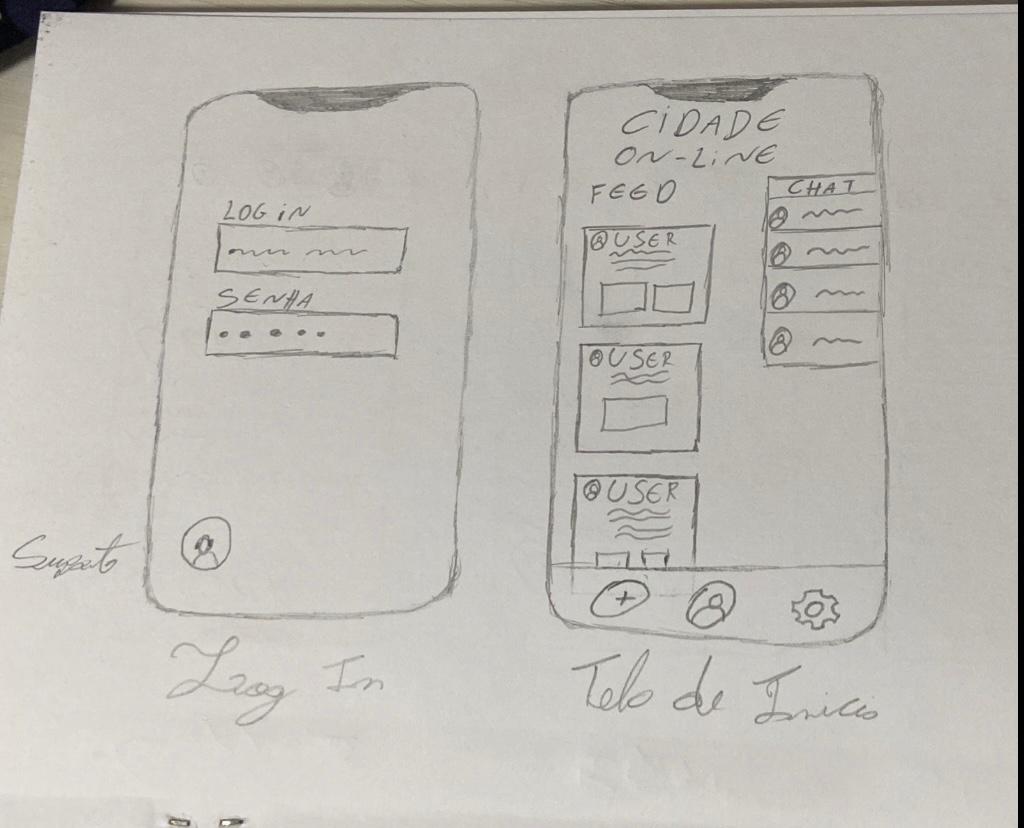 LOGIN
SENHA
Log In
CIDADE
ON-LINE
FEED
CHAT
USER
USER
USER
Tela de Inicio